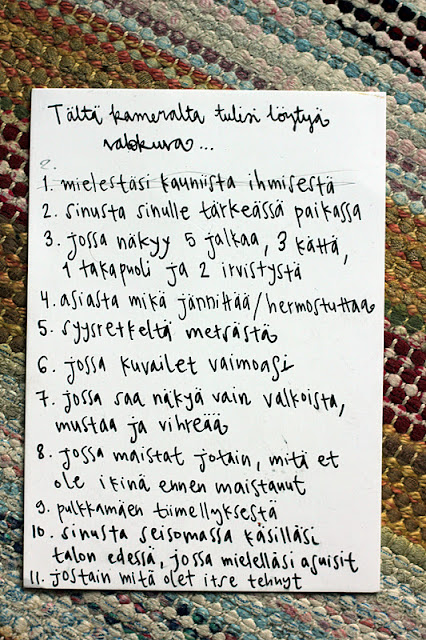 Tältä kameralta tulisi löytyä
valokuva...
1. mielestäsi kauniista ihmisestä
2. sinusta sinulle tärkeässä paikassa
3. jossa näkyy 5 jalkaa, 3 kättä,
1 takapuoli ja 2 irvistystä
4. asiasta mikä jännittää/hermostuttaa
5. syysretkeltä metsästä
6. jossa kuvailet vaimoasi
7. jossa saa näkyä vain valkoista,
mustaa ja vihreää
8. jossa maistat jotain, mitä et
ole ikinä ennen maistanut
9. pulkkamäen tiimellyksestä
10. sinusta seisomassa käsilläsi
talon edessä, jossa mielelläsi asuisit
11. jostain mitä olet itse tehnyt